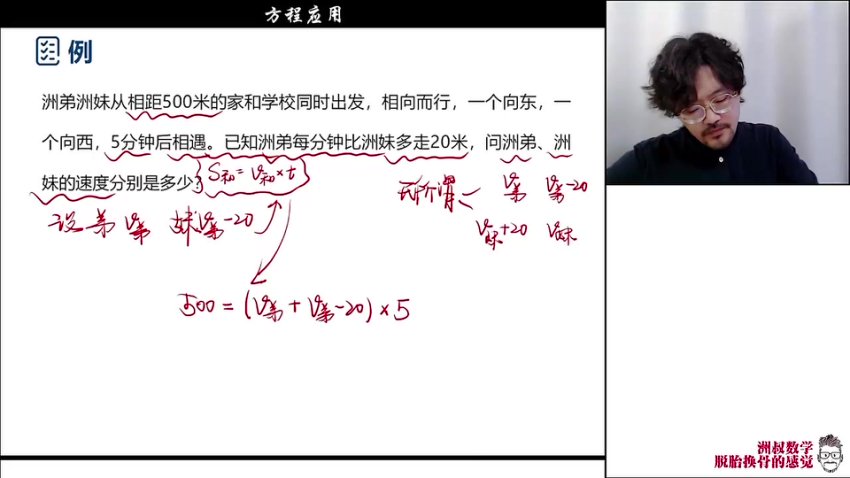 方程应用
例
洲弟洲妹从相距500米的家和学校同时出发，相向而行，一个向东，一
个向西，5分钟后相遇。已知洲弟每分钟比洲妹多走20米，问洲弟、洲
妹的速度分别是多少？
S和=V和×t
V弟 V弟-20
V妹+20 V妹
设弟V弟 妹V弟-20
500=(V弟+V弟-20)×5
洲叔数学
脱胎换骨的感觉